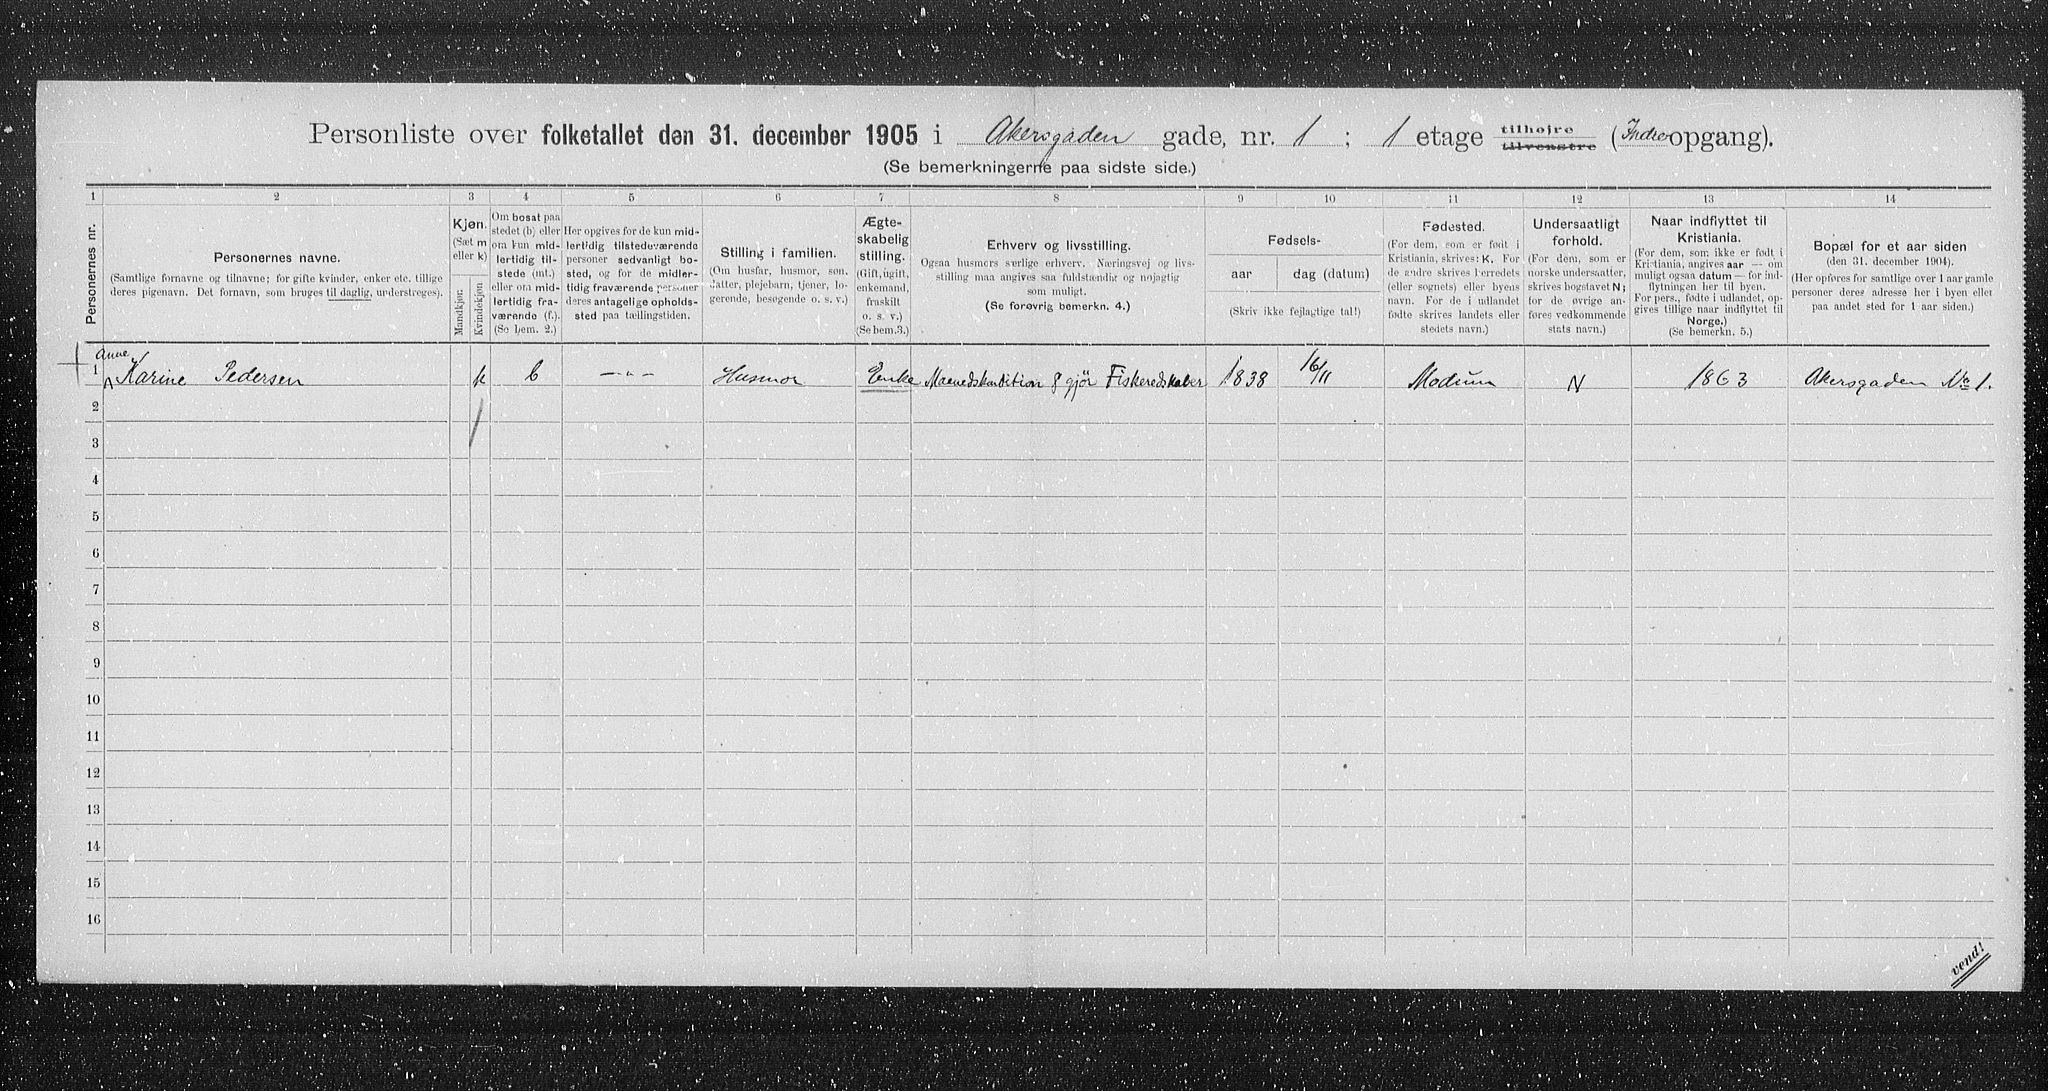 Personliste over folketallet den 31. december 1905 i Akersgaden gade, nr. 1 ; 1 etage tilhøjre tilvenstre (Indre opgang).
(Se bemerkningerne paa sidste side.)
1 2 3 4 5 6 7 8 9 10 11 12 13 14
Personernes nr.
Personernes navne.
(Samtlige fornavne og tilnavne; for gifte kvinder, enker etc. tillige
deres pigenavn. Det fornavn, som bruges til daglig, understreges).
Kjøn.
(Sæt m
eller k)
Mandkjøn.
Kvindekjøn
Om bosat paa
stedet (b) eller
om kun mid-
lertidig til-
stede (mt.)
eller om mid-
lertidig fra-
værende (f.).
(Se bem. 2.)
Her opgives for de kun mid-
lertidig tilstedeværende
personer sedvanligt bo-
sted, og for de midler-
tidig fraværende personer
deres antagelige opholds-
sted paa tællingstiden.
Stilling i familien.
(Om husfar, husmor, søn,
datter, plejebarn, tjener, lo-
gerende, besøgende o. s. v.)
Ægte-
skabelig
stilling.
(Gift, ugift,
enkemand,
fraskilt
o. s. v.)
(Se bem.3.)
Erhverv og livsstilling.
Ogsaa husmors særlige erhverv. Næringsvej og livs-
stilling maa angives saa fuldstændig og nøjagtig
som muligt.
(Se forøvrig bemerkn. 4.)
Fødsels-
aar
dag (datum)
(Skriv ikke fejlagtige tal!)
Fødested.
(For dem, som er født i
Kristiania, skrives: K. For
de andre skrives herredets
(eller sognets) eller byens
navn. For de i udlandet
fødte skrives landets eller
stedets navn.)
Undersaatligt
forhold.
(For dem, som er
norske undersaatter,
skrives bogstavet N;
for de øvrige an-
føres vedkommende
stats navn.)
Naar indflyttet til
Kristiania.
(For dem, som ikke er født i
Kristiania, angives aar — om
muligt ogsaa datum — for ind-
flytningen her til byen.
For pers., fødte i udlandet, op-
gives tillige naar indflyttet til
Norge.)
(Se bemerkn. 5.)
Bopæl for et aar siden
(den 31. december 1904).
(Her opføres for samtlige over 1 aar gamle
personer deres adresse her i byen eller
paa andet sted for 1 aar siden.)
Anne
1 Karine Pedersen k b —„— Husmor Enke Maanedskondition & gjör Fiskeredskaber 1838 16/11 Modum N 1863 Akersgaden No 1.
2
3
4
5
6
7
8
9
10
11
12
13
14
15
16
vend!